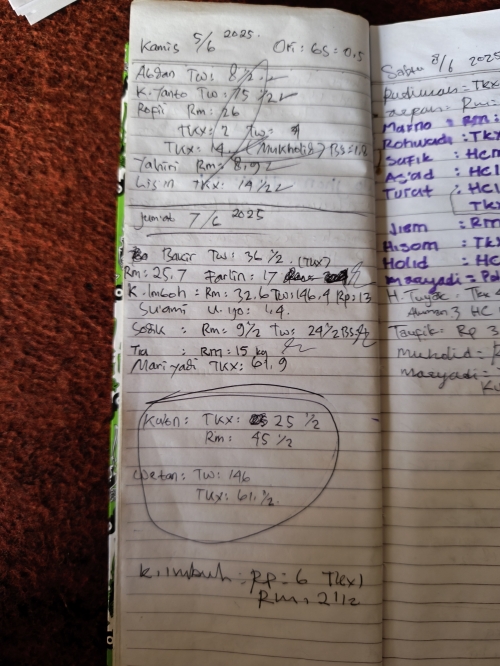 Kamis 5/6 2025. Ori: 65 = 0,5
Abdan Tw: 8 1/2
K. Yanto Tw: 15 1/2
Rofii Rm: 26
TKX: 2 Tw:
TKX: 14 (Mukholid) Bs:
Yahiri Rm: 8,92
TKX: 14 1/2
Jumat 7/6 2025
Bakir Tw: 36 1/2 (TKX)
Rm: 25,7 Farlin: 17
K. Imboh: Rm: 32,6 Tw: 146,4 Rp: 13
Swami 1,4
Sofik: Rm: 9 1/2 Tw: 24 1/2 Bs:
Rm: 15 kg
Mariyadi TKX: 61,9
Kulon: TKX: 25 1/2
Rm: 45 1/2
Wetan: Tw: 146
TKX: 61,1/2
K. Imbuh: Rp = 6 T(ex)
Rm, 2 1/2
Sabtu 8/6 2025
Rudiman = TKX
Rm:
Marno: Rm:
Rohwadi: TKX
Safik: HCM
As'ad: HCL
Turat: HCL
TKX
Niem: Rm
Hisom: TK
Holid: HC
Maryadi = Pa
H. Tuyok: TKX
3 HC
Taufik: Rp 3
Mukholid = R
Maryadi =